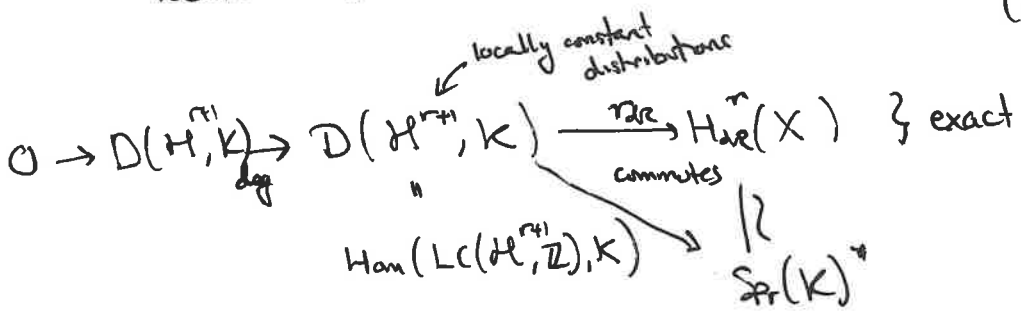 locally constant
distributions
0 → D(H^{r+1}, K)_{deg} → D(H^{r+1}, K) → H^r_{dR}(X) } exact
commutes
"
Hom(LC(H^{r+1}, Z), K)
Sp_r(K)^*